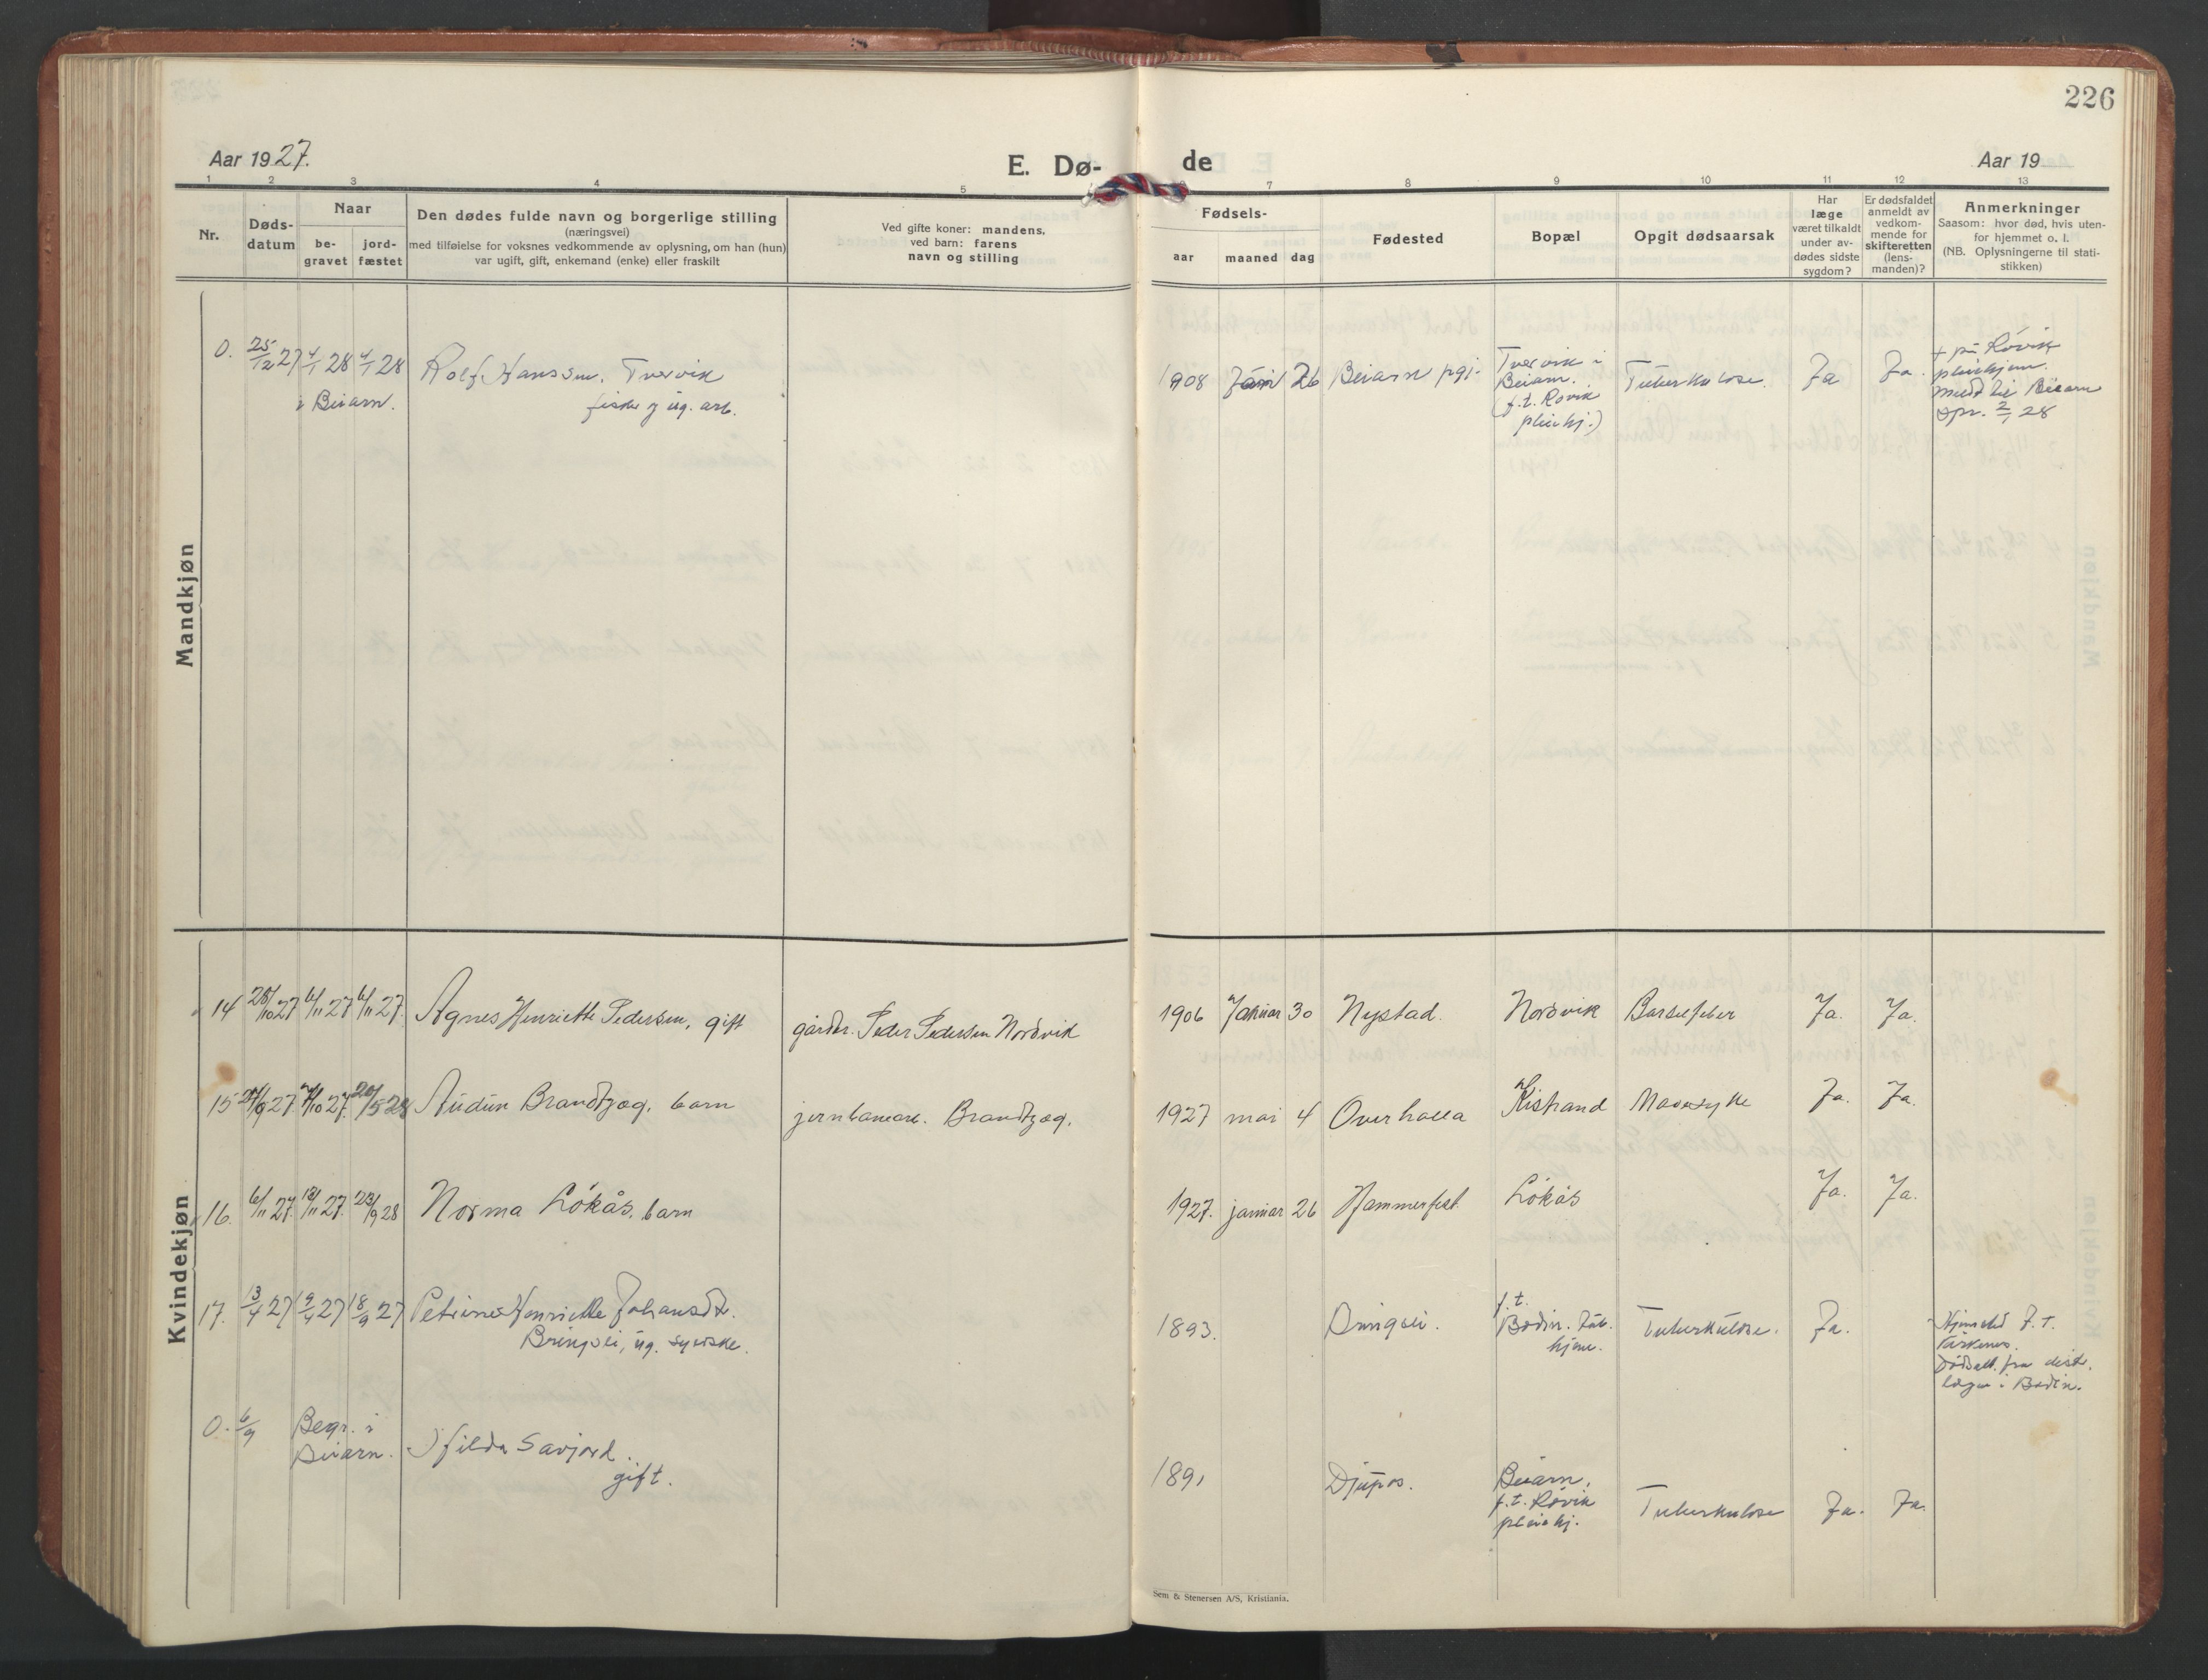 226
Aar 1927.
E. Dø-
de
Aar 19
1 2 3 4 5 7 8 9 10 11 12 13
Nr.
Døds-
datum
Naar
be-
gravet
jord-
fæstet
Den dødes fulde navn og borgerlige stilling
(næringsvei)
med tilføielse for voksnes vedkommende av oplysning, om han (hun)
var ugift, gift, enkemand (enke) eller fraskilt
Ved gifte koner: mandens,
ved barn: farens
navn og stilling
Fødsels-
aar maaned dag
Fødested
Bopæl
Opgit dødsaarsak
Har
læge
været tilkaldt
under av-
dødes sidste
sygdom?
Er dødsfaldet
anmeldt av
vedkom-
mende for
skifteretten
(lens-
manden)?
Anmerkninger
Saasom: hvor død, hvis uten-
for hjemmet o. l.
(NB. Oplysningerne til stati-
stikken)
Mandkjøn
0. 25/12 27 4/1 28 4/1 28 Rolf Hanssen, Tvervik
i Beiarn. fisker og ug. arb.
1908 26 Beiarn pgj.
Tvervik i
Beiarn.
(f.t. Røvik
pleiehj.)
Tuberkulose. Ja Ja.
+ på Røvik
pleiehjem.
meldt til Beiarn
2/1 28
Kvindekjøn
14 28/10 27 6/11 27 6/11 27 Agnes Henriette Pedersen, gift gårdbr. Peder Pedersen Nordvik 1906 Januar 30 Nystad. Nordvik Barselfeber Ja. Ja.
15 27. 27. 20/5 28 Audun Brandtzæg, barn jernbanearb. Brandtzæg. 1927 mai 4 Overhalla Kistrand Mavesyke Ja. Ja.
16. 6/11 27. 13/11 27. 23/9 28 Norma Løkås, barn 1927. januar 26 Hammerfest. Løkås Ja. Ja.
17. 3/4 27 19/4 27 18/9 27 Petrine Henriette Johansdt.
Bringsli, ug. syerske.
1893. Bringsli.
f.t.
Bodin. Tub.
hjem.
Tuberkulose. Ja.
Hjemsted f.t.
Kirkenes.
Dødsatt. fra distr.
læge i Bodin.
0. 6/9 Begr. i
Beiarn. Hilda Savjord.
gift.
1891 Djupos.
Beiarn,
f.t. Røvik
pleiehj.
Tuberkulose Ja. Ja.
Sem & Stenersen A/S, Kristiania.